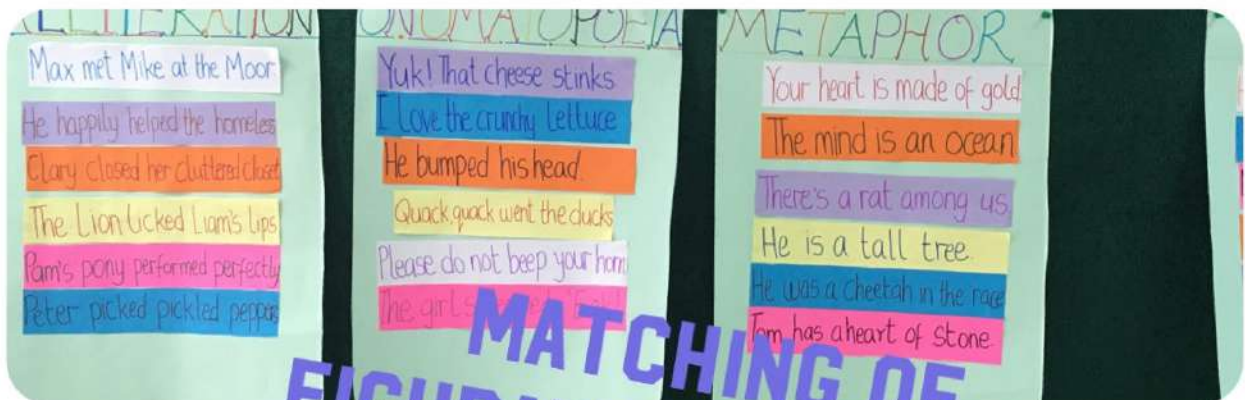 ALLITERATION
Max met Mike at the Moor
He happily helped the homeless
Clary closed her cluttered closet
The Lion licked Liam's lips
Pam's pony performed perfectly
Peter picked pickled peppers
ONOMATOPOEIA
Yuk! That cheese stinks
I Love the crunchy Lettuce
He bumped his head.
Quack, quack went the ducks
Please do not beep your horn
The girl
METAPHOR
Your heart is made of gold.
The mind is an ocean
There's a rat among us
He is a tall tree.
He was a cheetah in the race
Tom has a heart of stone
MATCHING OF